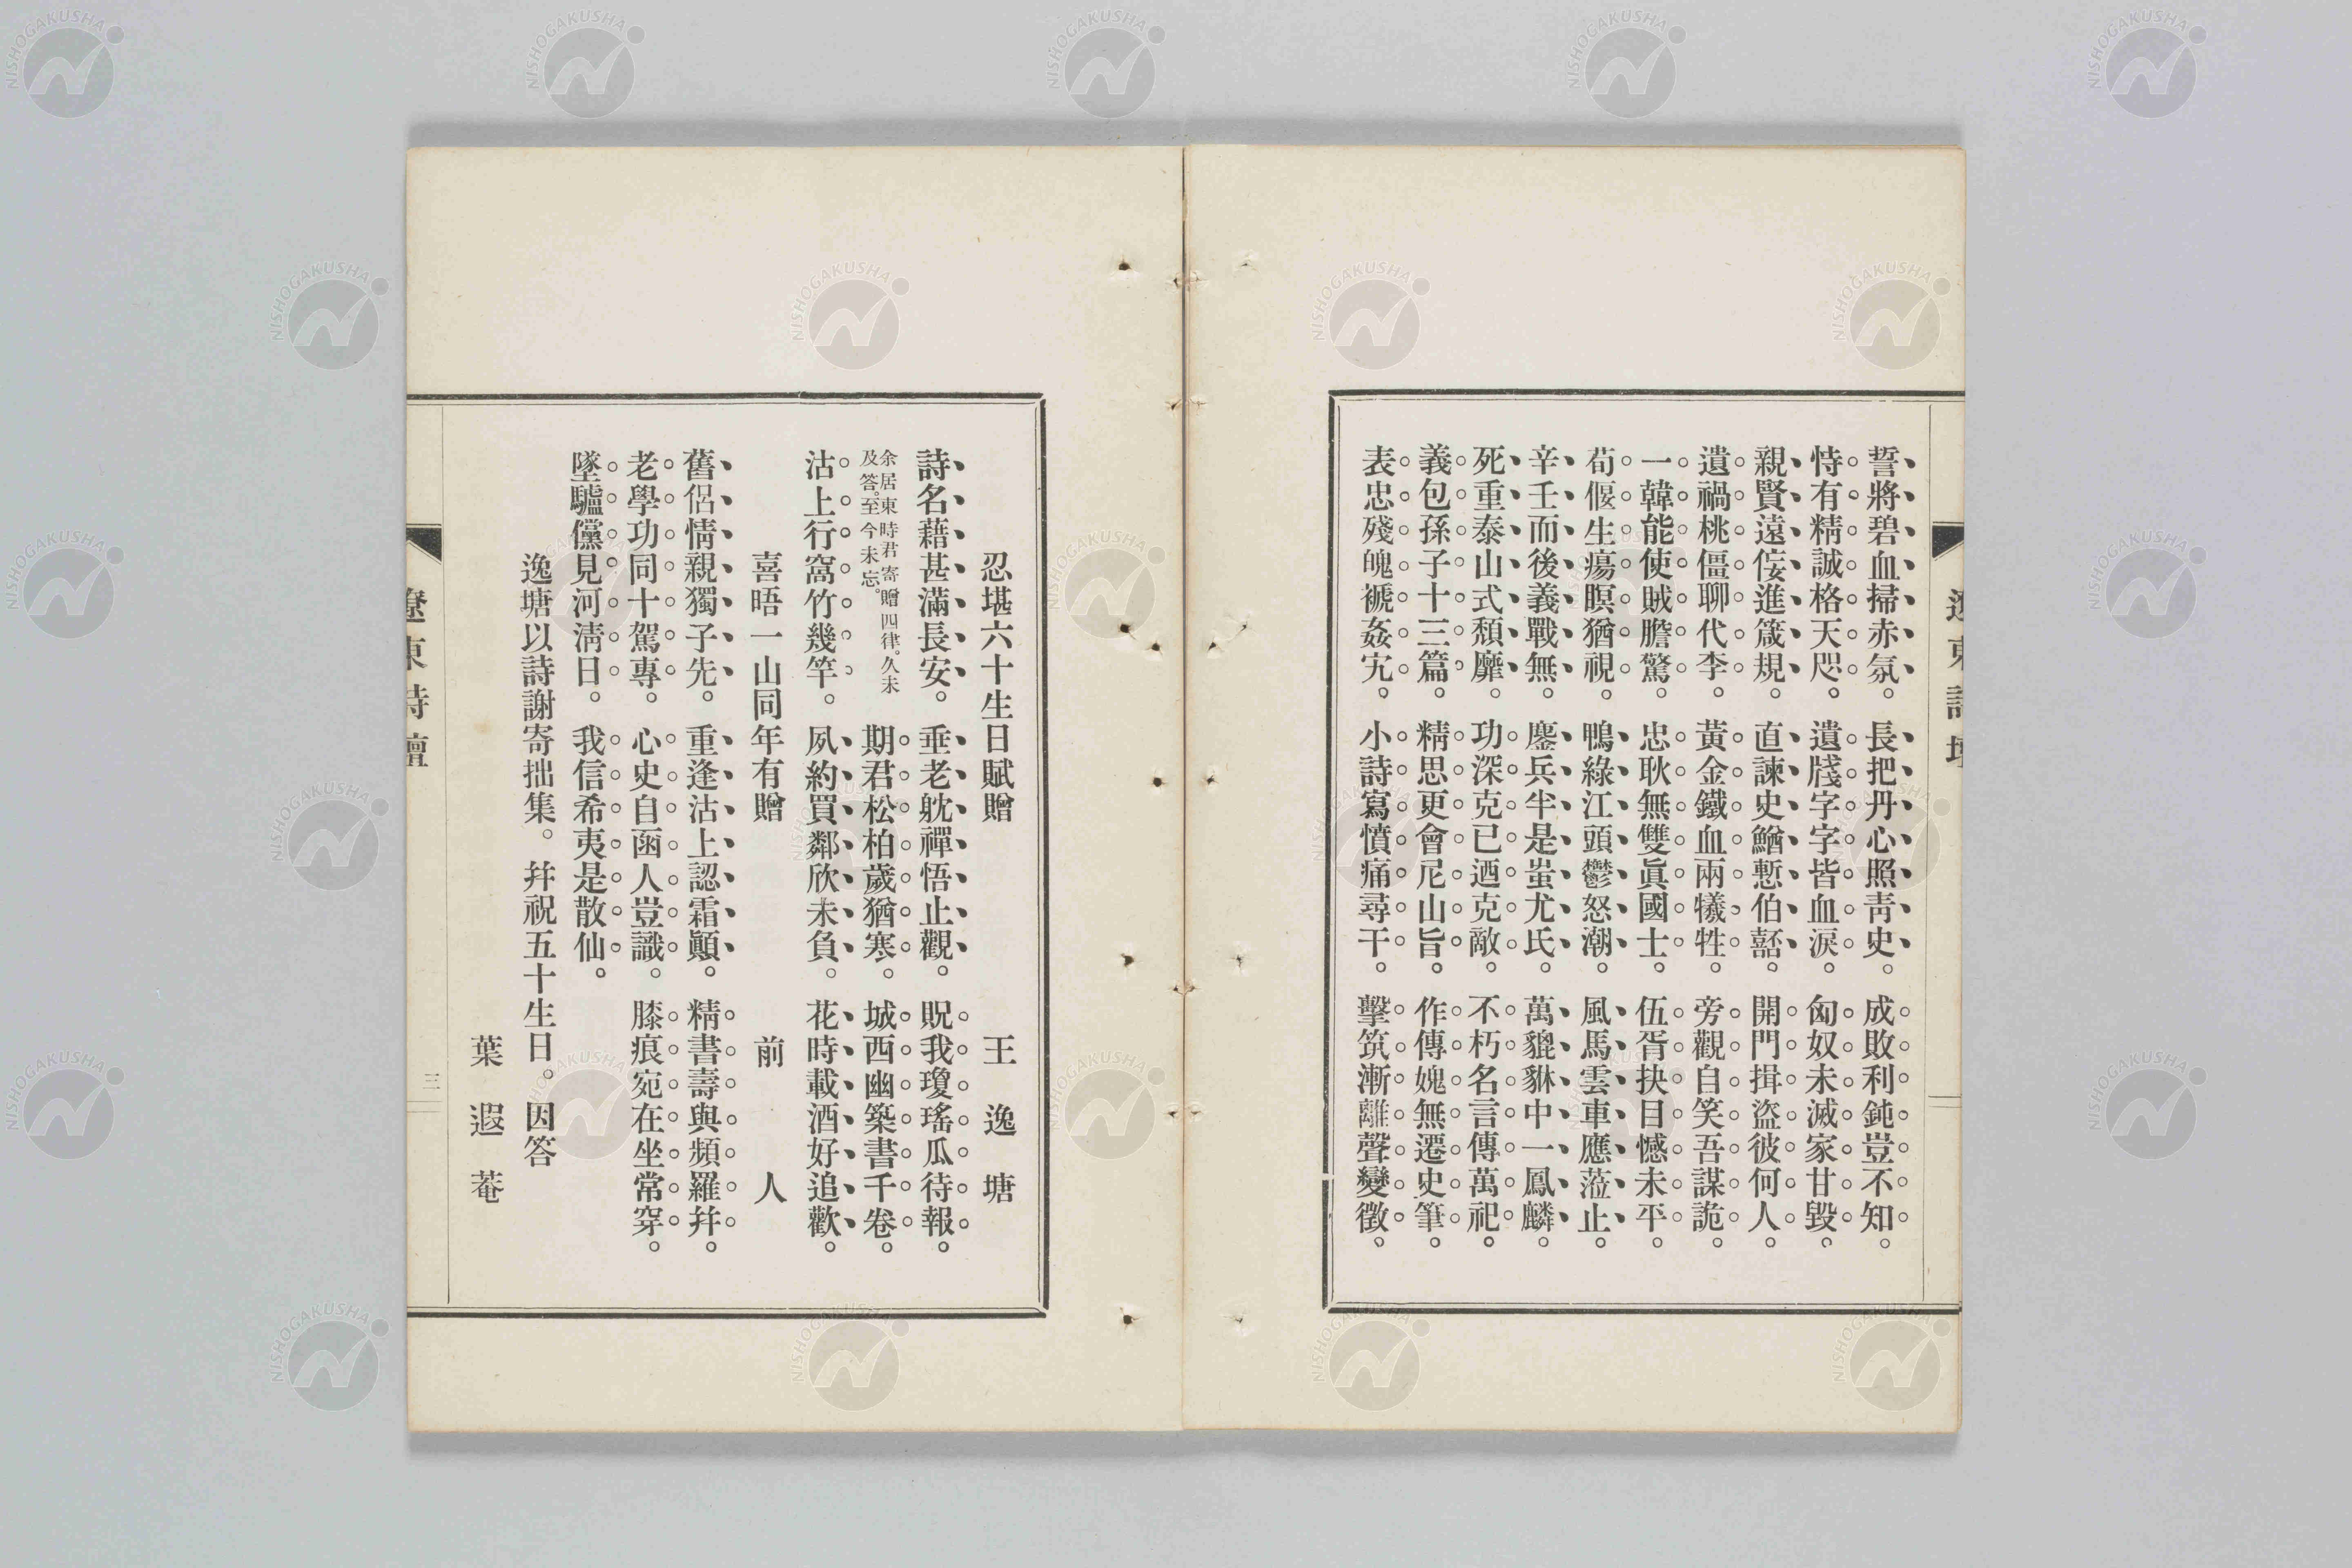 遼東詩壇
誓將碧血掃赤氛。長把丹心照靑史。成敗利鈍豈不知。
恃有精誠格天咫。遺牋字字皆血淚。匈奴未滅家甘毀。
親賢遠侫進箴規。直諫史鰌慙伯嚭。開門揖盜彼何人。
遺禍桃僵聊代李。黃金鐵血兩犧牲。旁觀自笑吾謀詭。
一韓能使賊膽驚。忠耿無雙眞國士。伍胥抉目憾未平。
荀偃生瘍瞑猶視。鴨綠江頭鬱怒潮。風馬雲車應蒞止。
辛壬而後義戰無。鏖兵半是蚩尤氏。萬貔貅中一鳳麟。
死重泰山式頹靡。功深克已迺克敵。不朽名言傳萬祀。
義包孫子十三篇。精思更會尼山旨。作傳媿無遷史筆。
表忠殘魄褫姦宄。小詩寫憤痛尋干。擊筑漸離聲變徵。
忍堪六十生日賦贈 王逸塘
詩名藉甚滿長安。垂老躭禪悟止觀。貺我瓊瑤瓜待報。
余居東時君寄贈四律。久未
及答。至今未忘。
期君松柏歲猶寒。城西幽築書千卷。
沽上行窩竹幾竿。夙約買鄰欣未負。花時載酒好追歡。
喜晤一山同年有贈 前人
舊侶情親獨子先。重逢沽上認霜顚。精書壽與頻羅幷。
老學功同十駕專。心史自函人豈識。膝痕宛在坐常穿。
墜驢儻見河淸日。我信希夷是散仙。
逸塘以詩謝寄拙集。幷祝五十生日。因答
葉遐菴
遼東詩壇
三
NISHOGAKUSHA